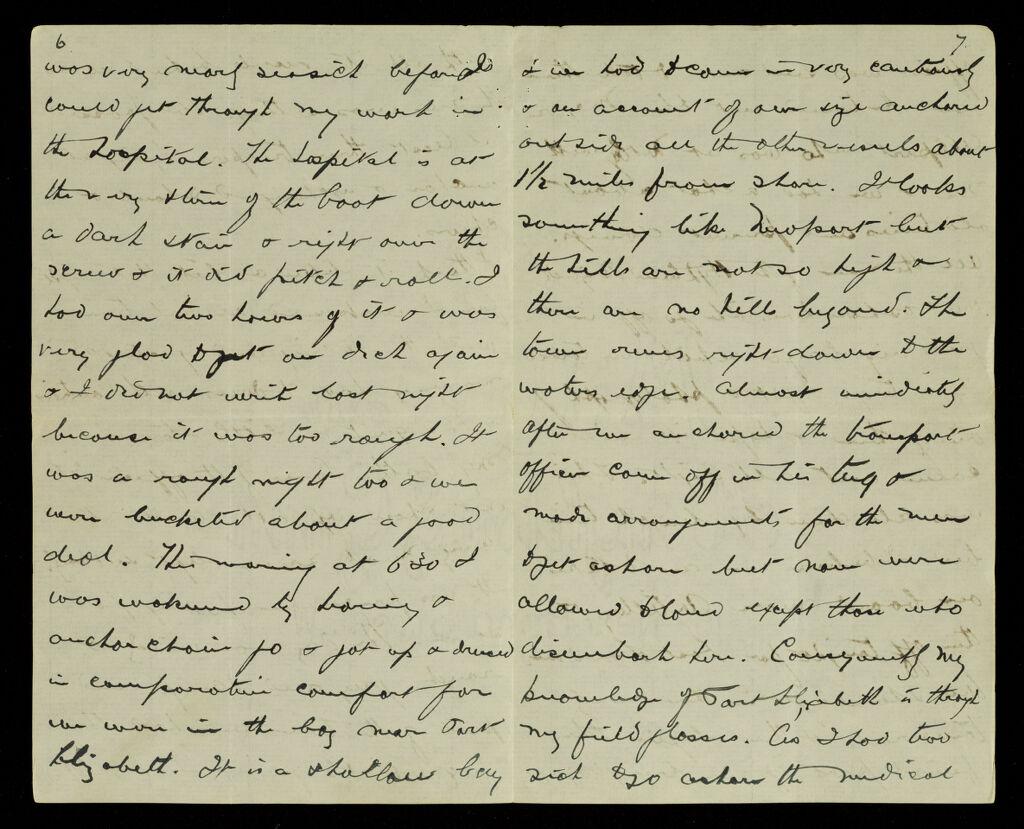 6
was very nearly seasick before I
could get through my work in
the hospital. The hospital is at
the very stern of the boat down
a dark stair & right over the
screw & it did pitch & roll. I
had over two hours of it & was
very glad to get on deck again
& I did not write last night
because it was too rough. It
was a rough night too & we
were bucketed about a good
deal. This morning at 630 I
was wakened by hearing &
anchor chain go & got up & dressed
in comparative comfort for
we were in the bay near Port
Elizabeth. It is a shallow bay
7
& we had to come in very cautiously
& on account of our size anchored
outside all the other vessels about
1½ miles from shore. It looks
something like Newport but
the hills are not so high &
there are no hills beyond. The
town runs right down to the
waters edge. Almost immediately
after we anchored the transport
officer came off in his tug &
made arrangements for the men
to get ashore but none were
allowed to land except those who
disembark here. Consequently my
knowledge of Port Elizabeth is through
my field glasses. As I had two
sick to go ashore the medical